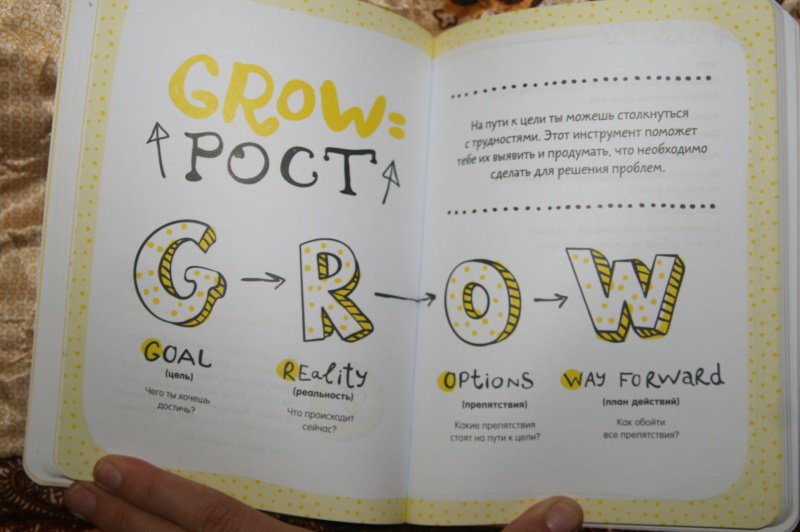 GROW:
РОСТ
На пути к цели ты можешь столкнуться
с трудностями. Этот инструмент поможет
тебе их выявить и продумать, что необходимо
сделать для решения проблем.
G R O W
GOAL
(цель)
Чего ты хочешь
достичь?
REality
(реальность)
Что происходит
сейчас?
OPtiONS
(препятствия)
Какие препятствия
стоят на пути к цели?
WAY FORWARD
(план действий)
Как обойти
все препятствия?